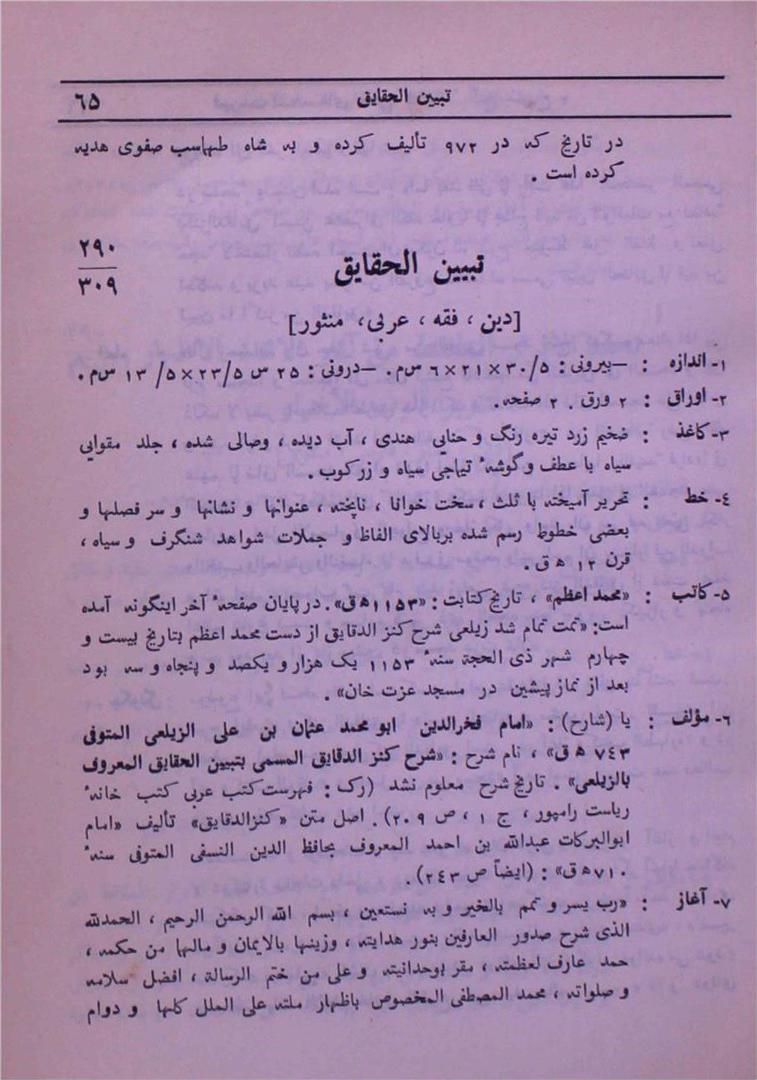 تبیین الحقایق ۶۵
در تاریخ که در ۹۷۲ تألیف کرده و به شاه طهماسب صفوی هدیه
کرده است .
تبیین الحقایق
۲۹۰
۳۰۹
[دین ، فقه ، عربی ، منثور]
۱- اندازه : —بیرونی : ۳۰/۵×۲۱×۶ سم. —درونی : ۲۵ س ۲۳/۵×۱۳/۵ سم .
۲- اوراق : ۲ ورق . ۲ صفحه.
۳- کاغذ : ضخیم زرد تیره رنگ و حنایی هندی ، آب دیده ، وصالی شده ، جلد مقوایی
سیاه با عطف وگوشهٔ تیماجی سیاه و زرکوب .
۴- خط : تحریر آمیخته با ثلث ، سخت خوانا ، ناپخته ، عنوانها و نشانها و سر فصلها و
بعضی خطوط رسم شده بربالای الفاظ و جملات شواهد شنگرف و سیاه ،
قرن ۱۲ ه ق .
۵- کاتب : «محمد اعظم» ، تاریخ کتابت : «۱۱۵۳ه ق». در پایان صفحهٔ آخر اینگونه آمده
است: «تمت تمام شد زیلعی شرح کنز الدقایق از دست محمد اعظم بتاریخ بیست و
چهارم شهر ذی الحجة سنهٔ ۱۱۵۳ یک هزار و یکصد و پنجاه و سه بود
بعد از نماز پیشین در مسجد عزت خان» .
۶- مؤلف : یا (شارح) : «امام فخرالدین ابو محمد عثمان بن علی الزیلعی المتوفی
۷۴۳ ه ق» ، نام شرح : «شرح کنز الدقایق المسمی بتبیین الحقایق المعروف
بالزیلعی» . تاریخ شرح معلوم نشد (رک : فهرست کتب عربی کتب خانهٔ
ریاست رامپور ، ج ۱ ، ص ۲۰۹) . اصل متن «کنزالدقایق» تألیف «امام
ابوالبرکات عبدالله بن احمد المعروف بحافظ الدین النسفی المتوفی سنهٔ
۷۱۰ه ق» : (ایضاً ص ۲۴۳).
۷- آغاز : «رب یسر و تمم بالخیر و به نستعین ، بسم الله الرحمن الرحیم ، الحمدلله
الذی شرح صدور العارفین بنور هدایته ، وزینها بالایمان و مالها من حکمه ،
حمد عارف لعظمته ، مقر بوحدانیته و علی من ختم الرسالة ، افضل سلامه
و صلواته ، محمد المصطفی المخصوص باظهار ملته علی الملل کلها و دوام